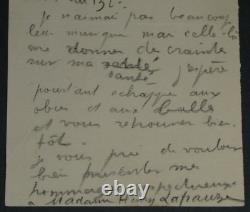 Je n'aimai pas beaucoup
leur musique mar celle-là
me donner de crainte
sur ma santé
santé j'espère
pourtant échapper aux
obus et aux balle
et vous retrouver bien
tôt.
Je vous prie de vouloir
bien présenter mes
hommages respectueux
à Madame Henry Lapauze